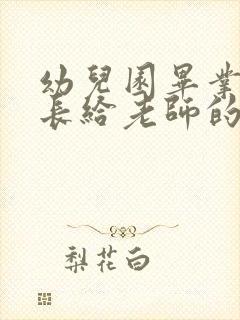 幼兒園畢業
長給老師的
梨花白